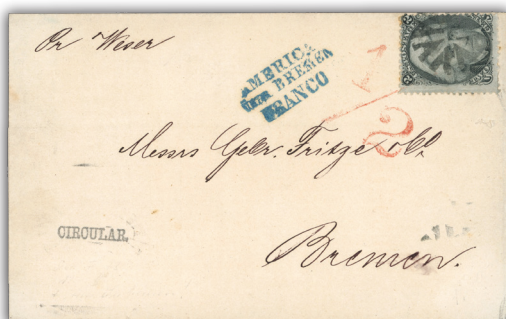 Pr Weser
AMERICA
über BREMEN
FRANCO
2
Messrs Gebr. Fritze & Co.
CIRCULAR.
Bremen.